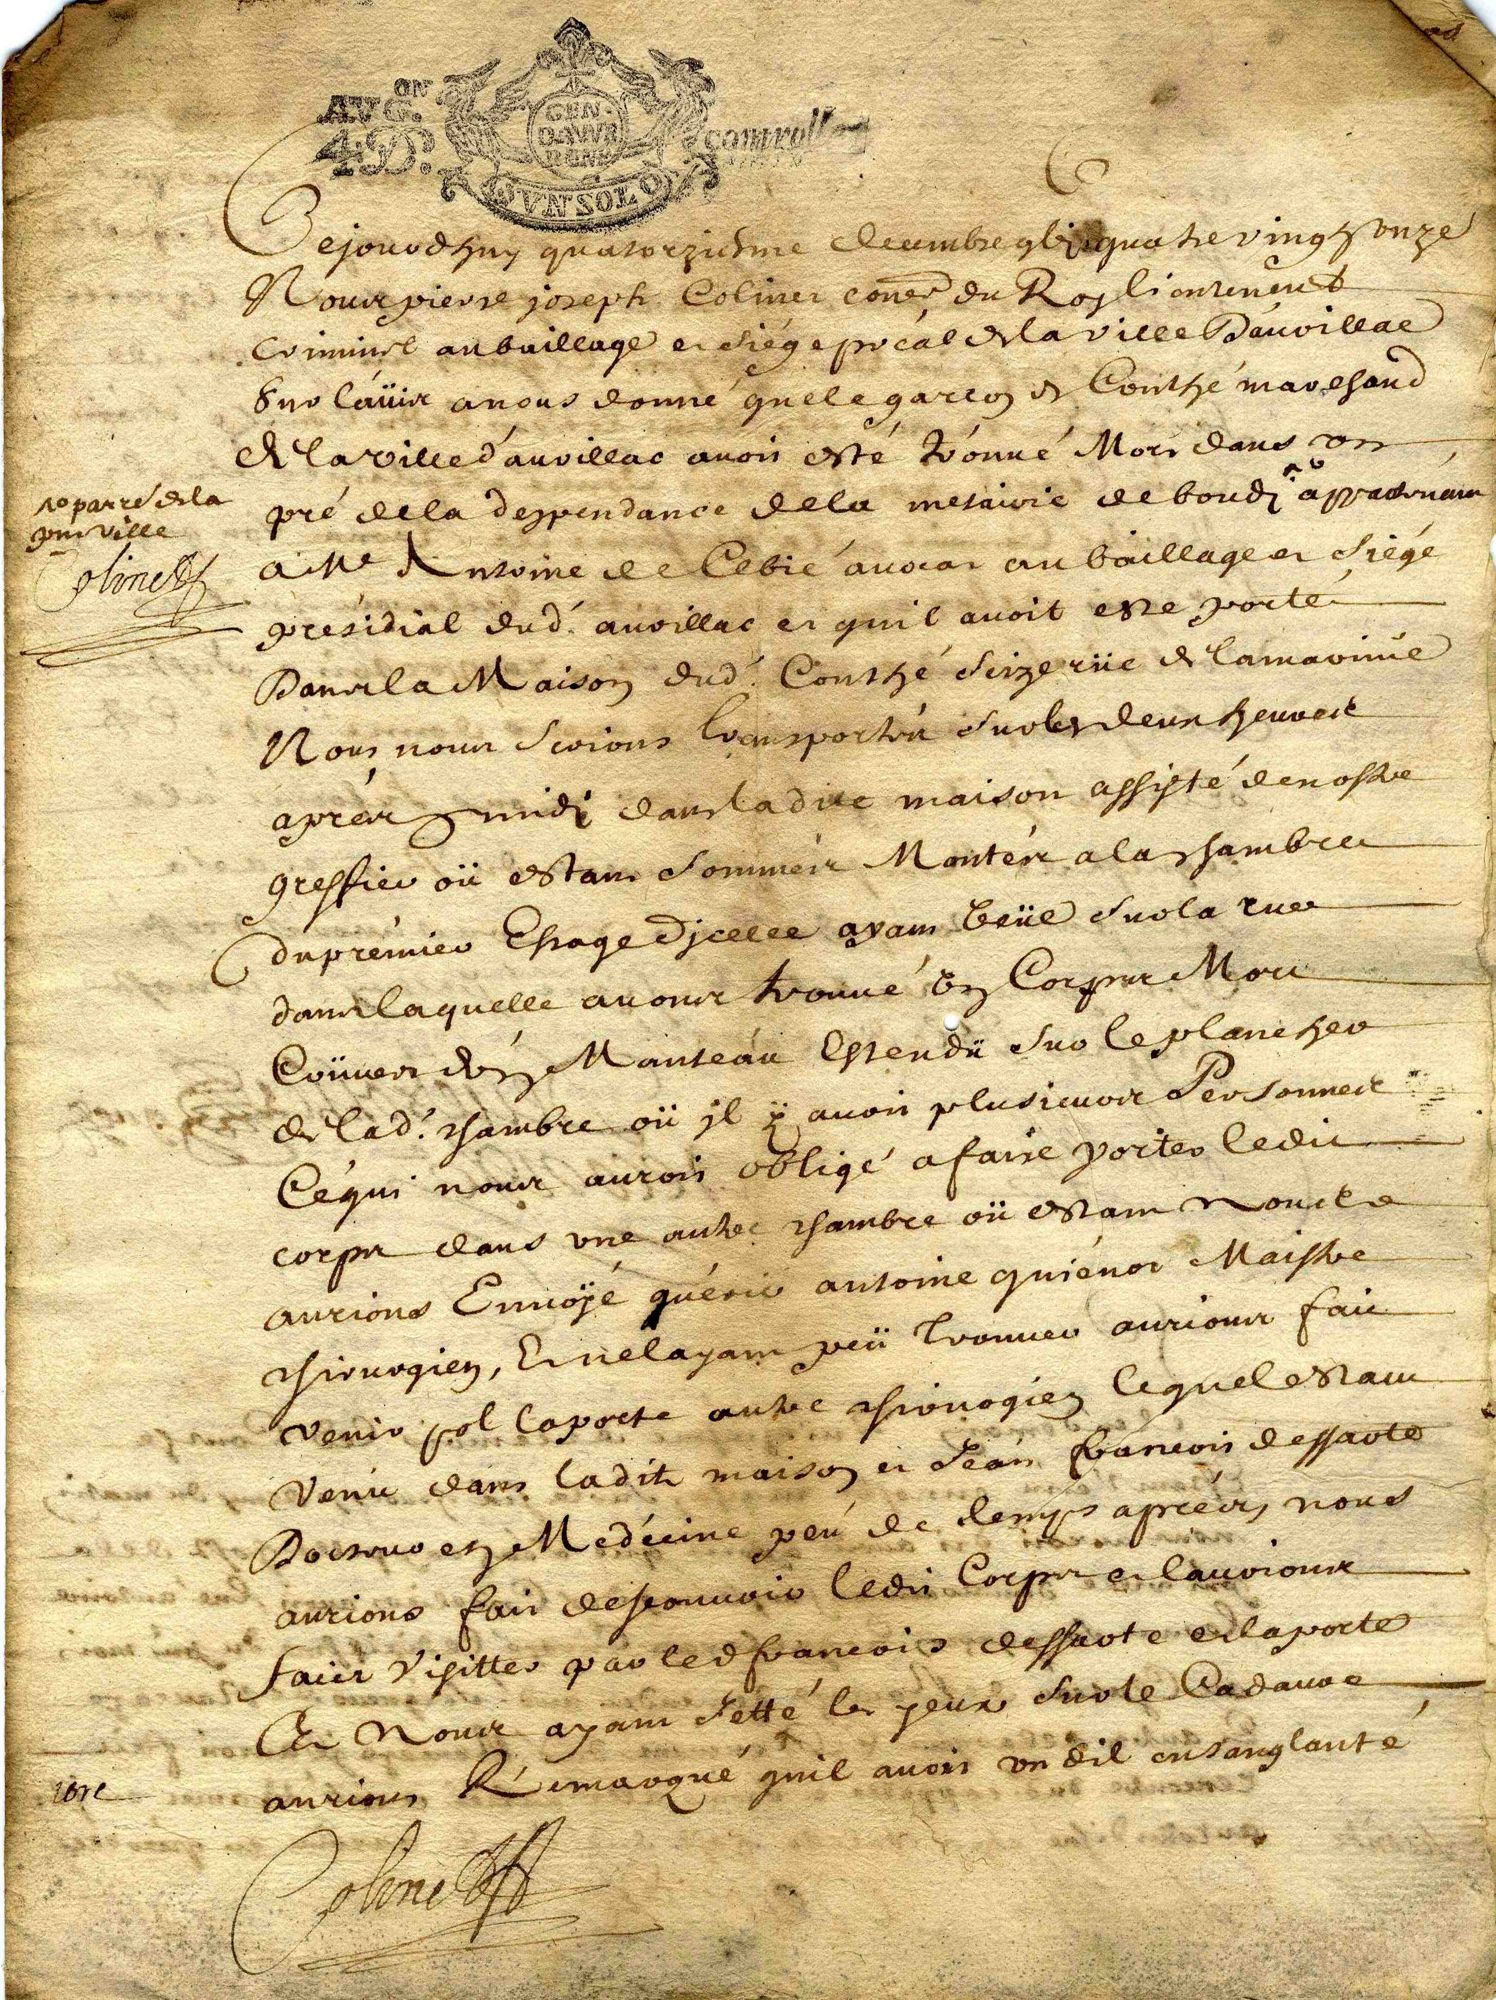 AVG.ON
4D.
GEN.
DAWE
RGNE
VNSOL
controlle
Cejourdhuy quatorziesme decembre gbi quatre vingtz onze
Nous pierre joseph Colinet coner du Roy lieutenent
Criminel au baillage et siége pñcal de la ville Dauvillac
Sur l'auis a nous donné que le garcon de Couthé marchand
de la ville d'auvillac auoit esté trouué Mort dans un
pré de la despendance de la metairie de boudy appartenãt
a Me Antoine de Cebié auocat au baillage et siége
présidial dud. auvillac et quil auoit este porté
Dans la Maison dud. Couthé size rüe de
Nous nous serions transportés sur les deux heures
aprés midy dans la dite maison assisté de nostre
greffier oü estant sommes Montés a la chambre
du prémier Estage Djcelle ayant veüe sur la rue
dans laquelle auons trouué un Corps Mort
Coüuert d'un Manteau Estendü sur le plancher
de lad. chambre oü jl y auoit plusieurs Personnes
Cé qui nous auroit obligé a faire porter ledit
corps dans une autre chambre oü estant nous
aurions Enuoyé quérir antoine quiénot Maistre
chirurgien, Et ne layant peü trouuer aurions fait
venir pol laporte autre chirurgien lequel estant
venü dans ladite maison et Jean francois dessarte
Docteur en Medécine peu de temps aprés nous
aurions fait descouurir ledit Corps et laurions
faict visitter par led francois dessarte et laporte
Et Nous ayant Jetté les yeux sur le Cadaure
aurions Rémarqué quil auoit un oeil ensanglanté
de la
pnt ville
Colinet
Colinet